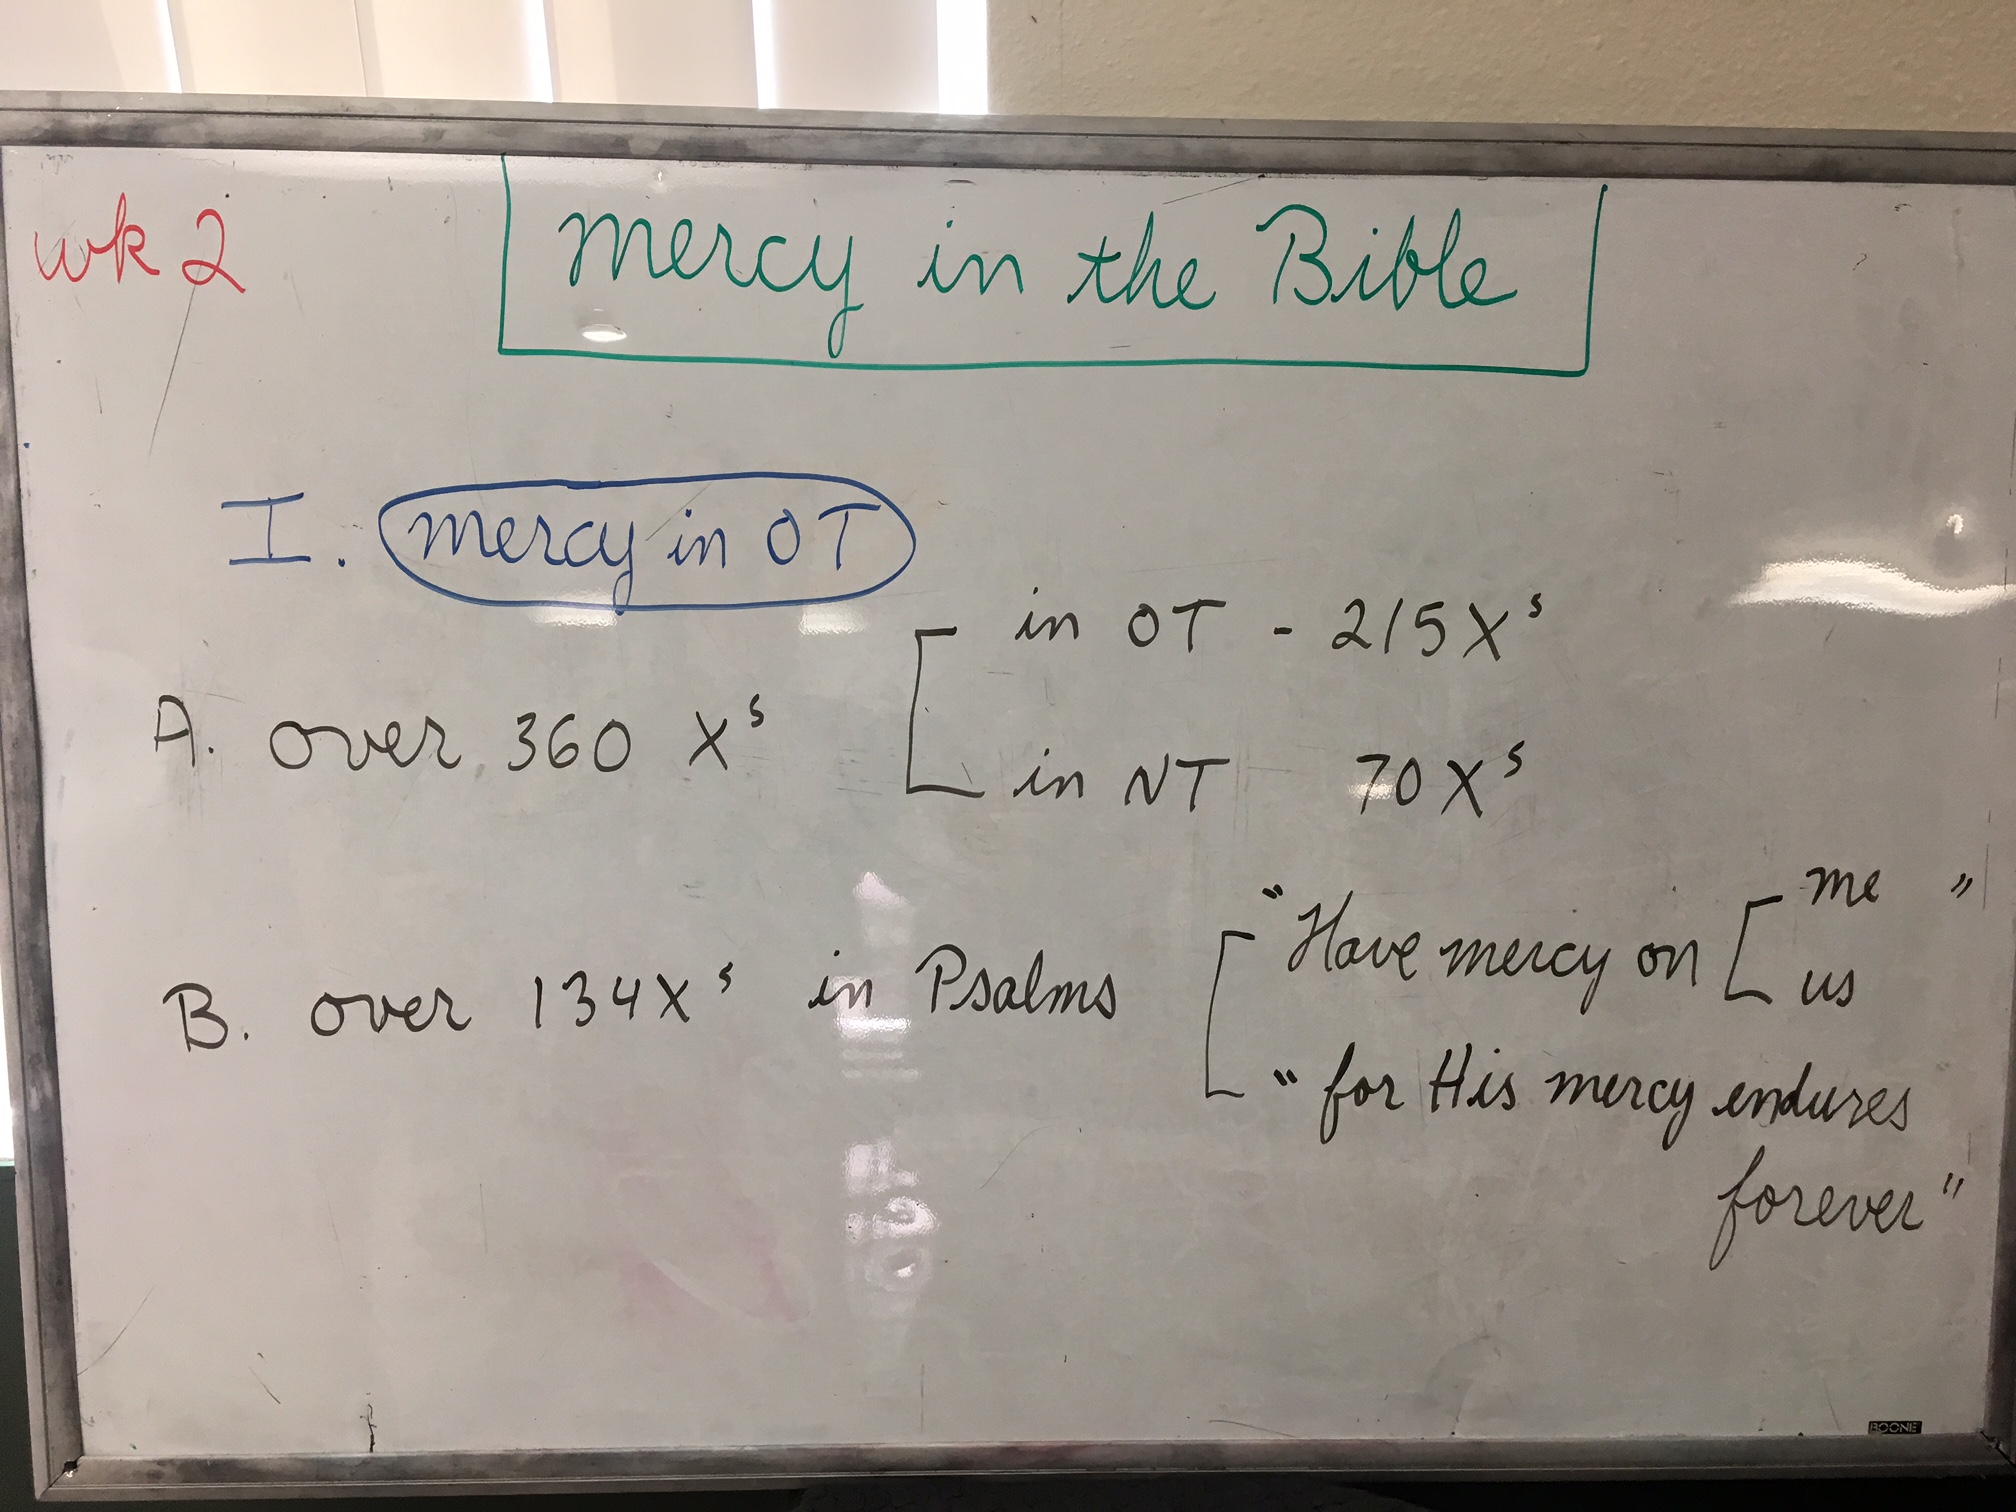 wk 2
mercy in the Bible
I. mercy in OT
in OT - 215 Xs
A. over 360 Xs
in NT 70 Xs
B. over 134 Xs in Psalms
"Have mercy on me "
us
"for His mercy endures
forever"
BOONE